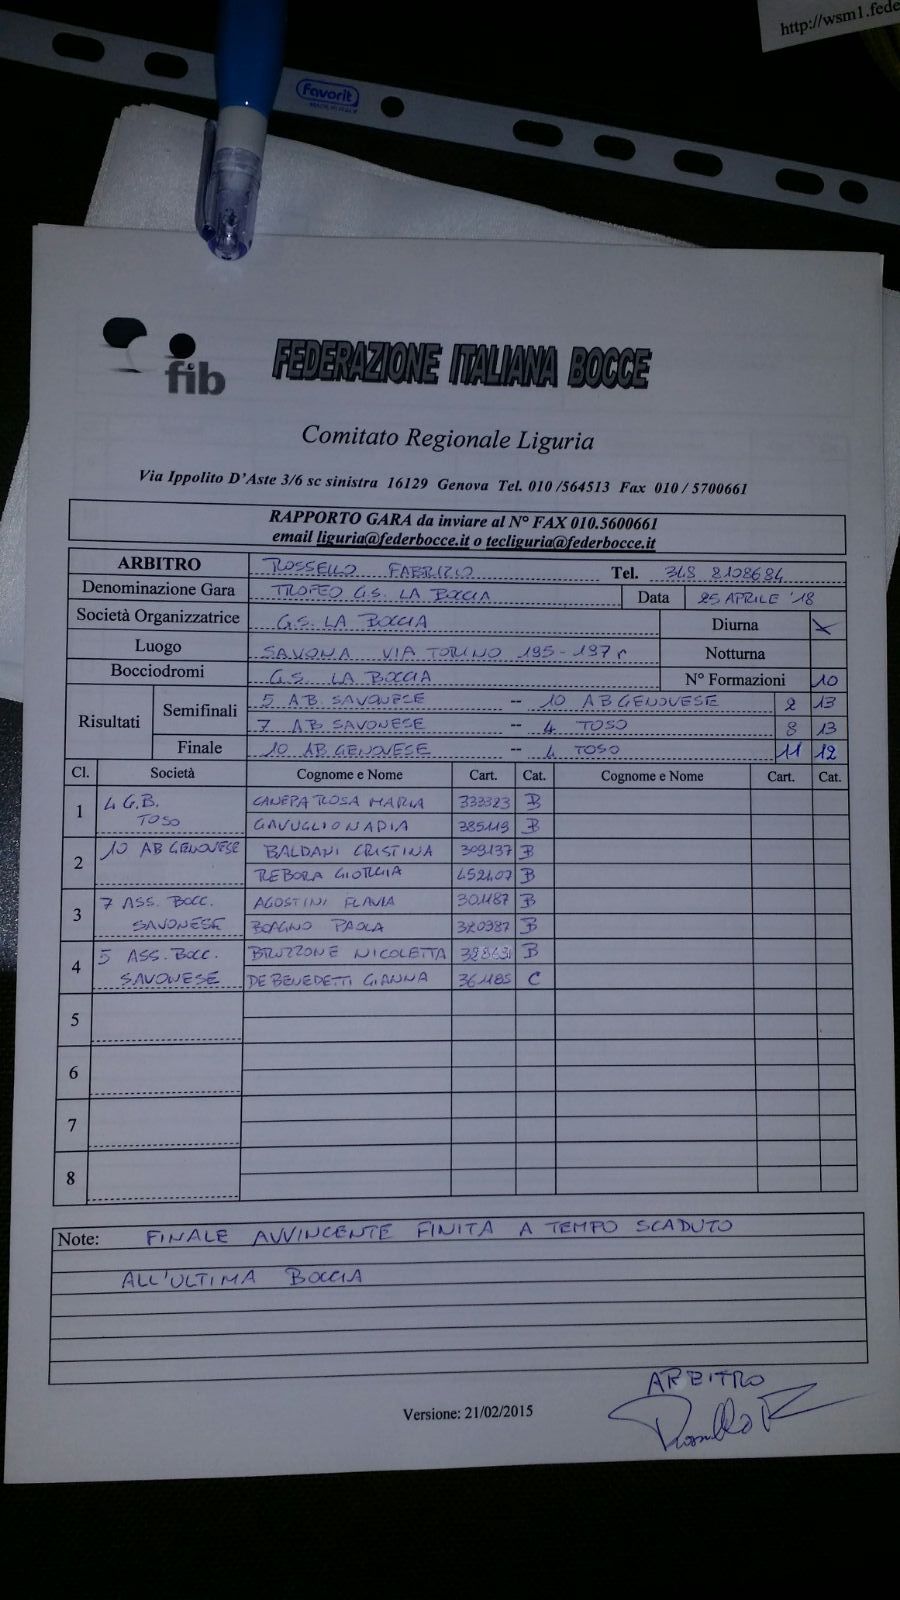 http://wsm1.fede
Favorit
fib
FEDERAZIONE ITALIANA BOCCE
Comitato Regionale Liguria
Via Ippolito D'Aste 3/6 sc sinistra 16129 Genova Tel. 010 /564513 Fax 010 / 5700661
RAPPORTO GARA da inviare al N° FAX 010.5600661
email liguria@federbocce.it o tecliguria@federbocce.it
ARBITRO ROSSELLO FABRIZIO Tel. 348 8108684
Denominazione Gara TROFEO G.S. LA BOCCIA Data 25 APRILE '18
Società Organizzatrice G.S. LA BOCCIA Diurna X
Luogo SAVONA VIA TORINO 195-197 r Notturna
Bocciodromi G.S. LA BOCCIA N° Formazioni 10
Risultati Semifinali 5 A.B. SAVONESE -- 10 AB GENOVESE 2 13
7 A.B SAVONESE -- 4 TOSO 8 13
Finale 10 AB GENOVESE -- 4 TOSO 11 12
Cl. Società Cognome e Nome Cart. Cat. Cognome e Nome Cart. Cat.
1 4 G.B. CANEPA ROSA MARIA 333323 B
TOSO GAVUGLIO NADIA 385119 B
2 10 AB GENOVESE BALDANI CRISTINA 309137 B
REBORA GIORGIA 452407 B
3 7 ASS. BOCC. AGOSTINI FLAVIA 301187 B
SAVONESE BOAGNO PAOLA 320987 B
4 5 ASS. BOCC. BRUZZONE NICOLETTA B
SAVONESE DE BENEDETTI GIANNA 361185 C
5
6
7
8
Note: FINALE AVVINCENTE FINITA A TEMPO SCADUTO
ALL'ULTIMA BOCCIA
ARBITRO
Versione: 21/02/2015